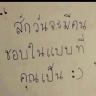 สักวันจะมีคน
ชอบในแบบที่
คุณเป็น :)